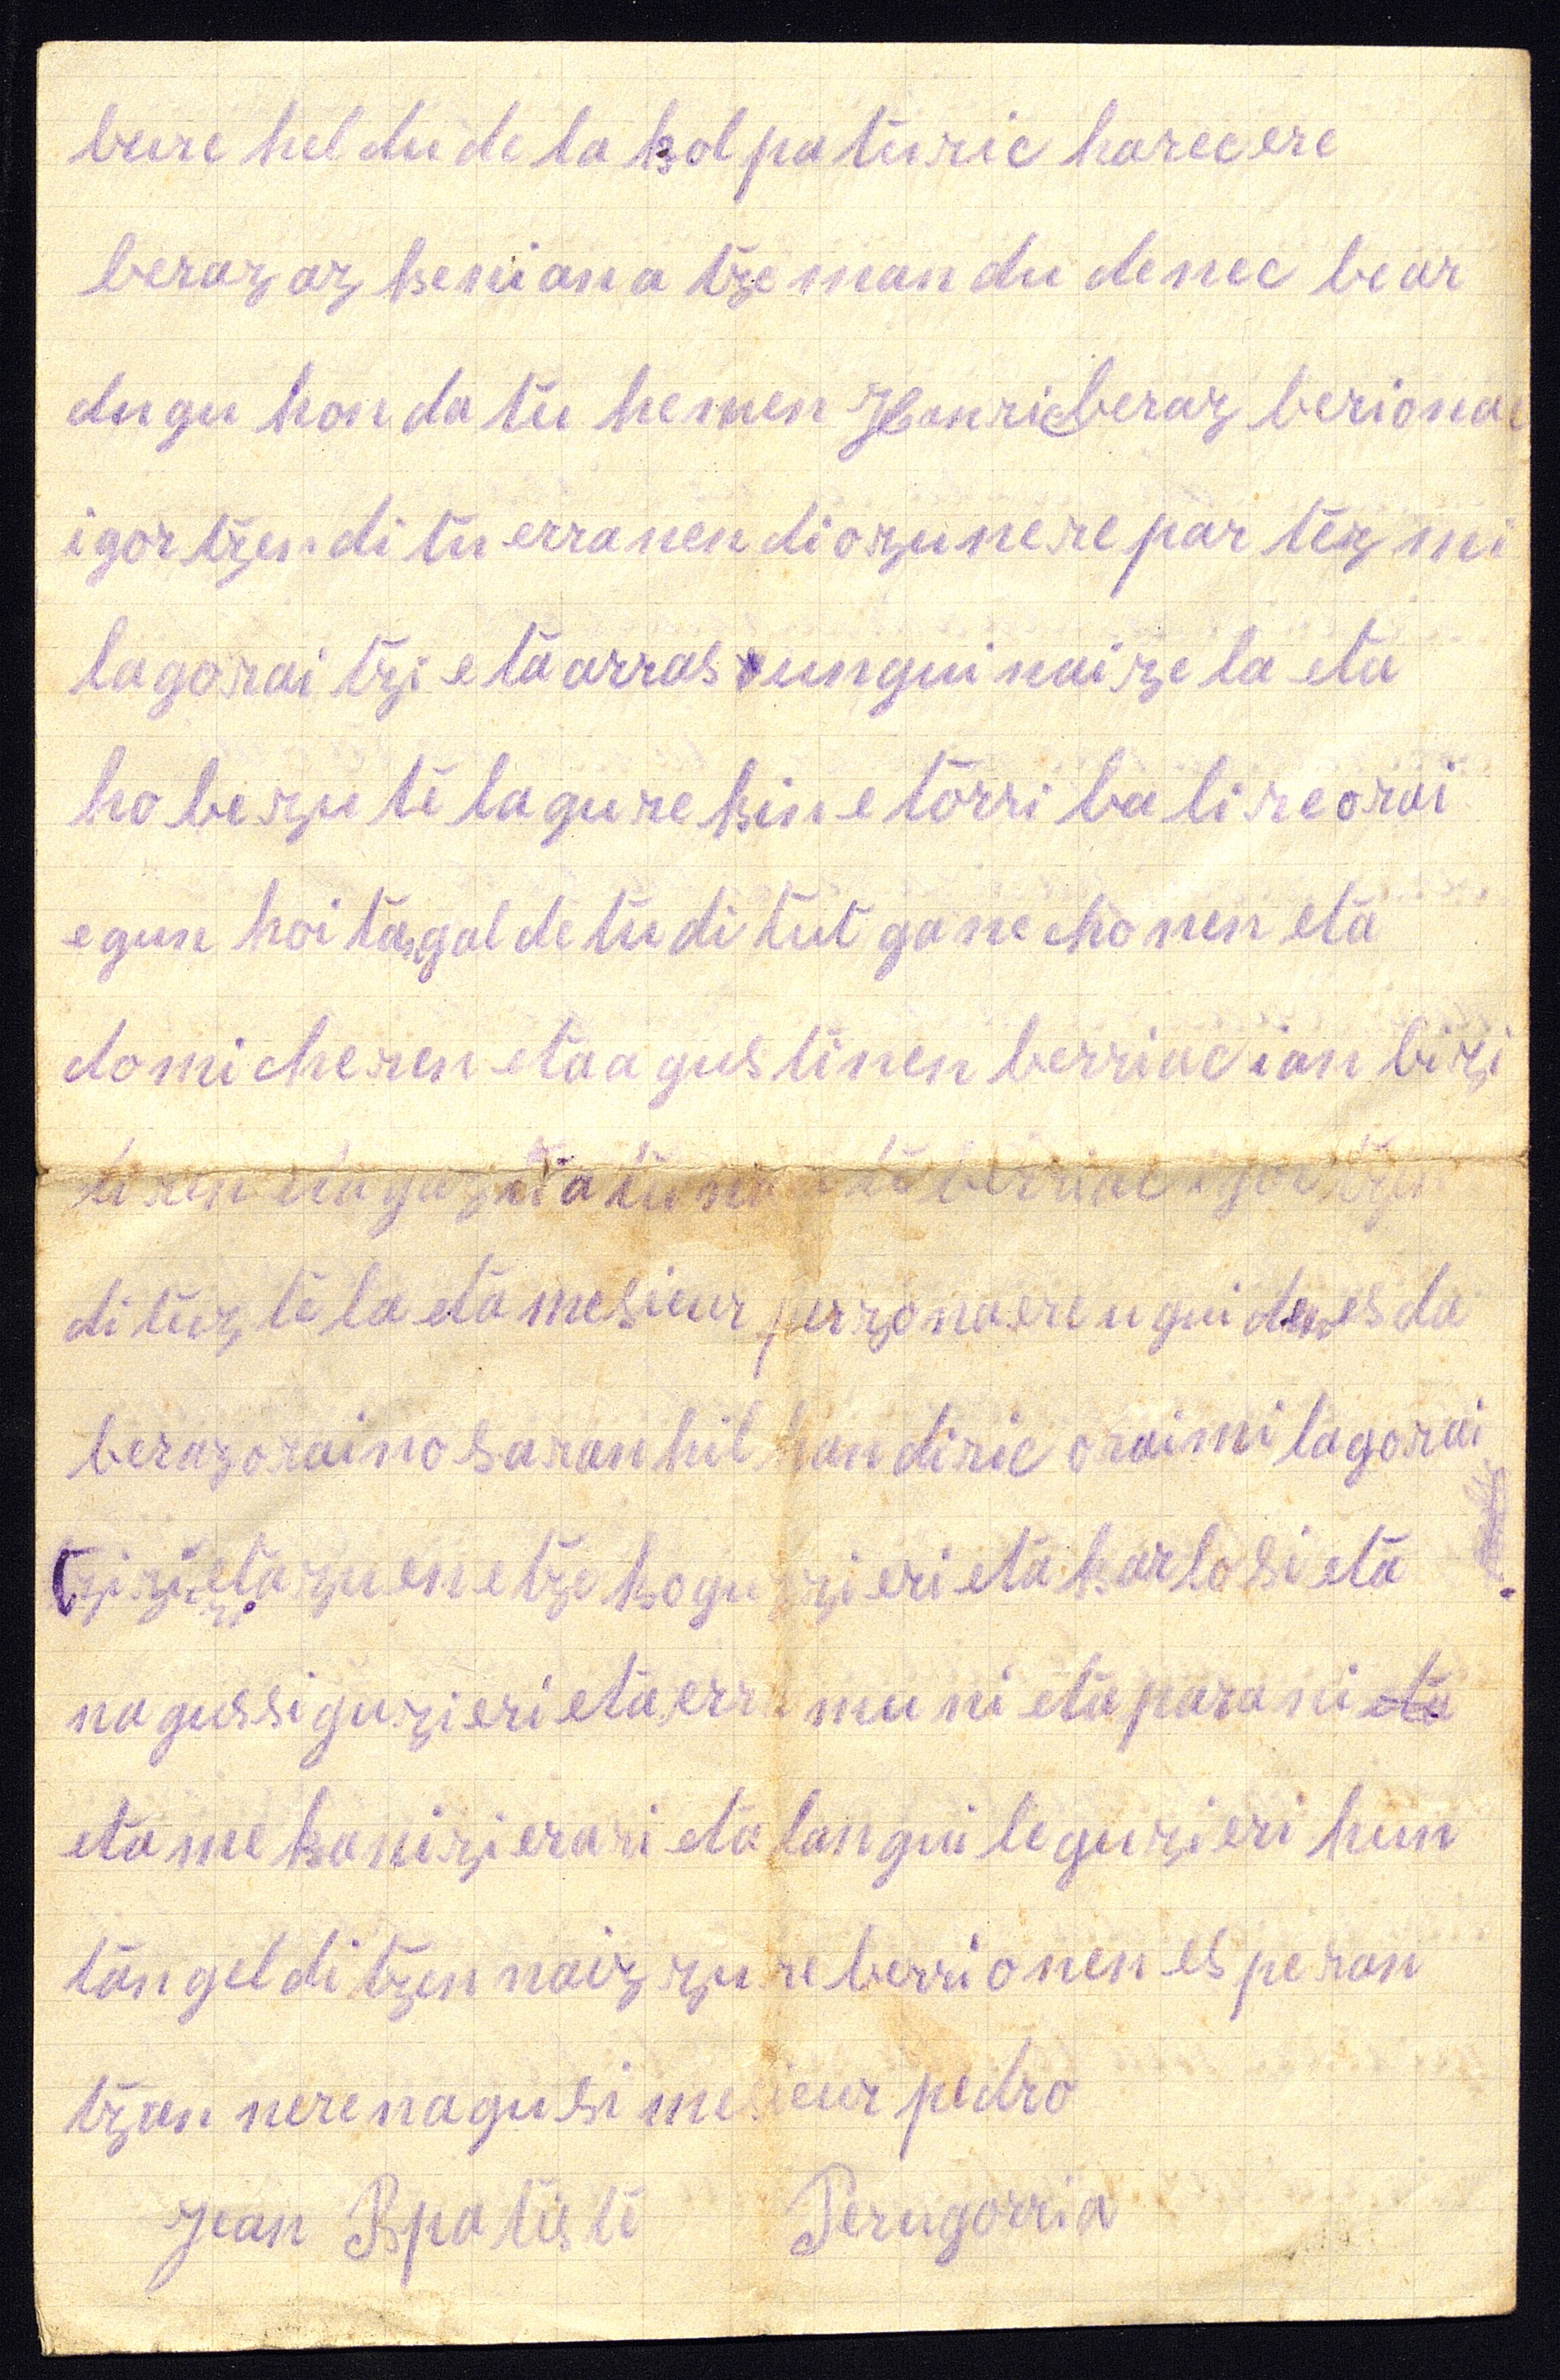 bure heldu dela kolpaturic harec ere
beraz azkeniana tzemandu denec bear
dugu hondatu hemen Hanric beraz berionac
igortzen ditu erranen diozu nere partez mi
lagoraitzi eta arras ungui naizela eta
hobe zutela gurekin etorri balire orai
egun hoitan galdetu ditut ganechonen eta
domicheren eta agustinen berriac ian bizi
berriac igortzen
dituztela eta mesieur perzona ere ugui den es da
beraz oraino saran hil handiric orai milagorai
tzi zieta zuen etzeko guzieri eta karlosi eta
nagussi guzieri eta erramuni eta parani eta
eta mekanizierari eta languile guzieri hun
tan gelditzen naiz zure berrionen esperan
tzan nere nagusi mesieur pedro
Jean Bpatiste Perugorria